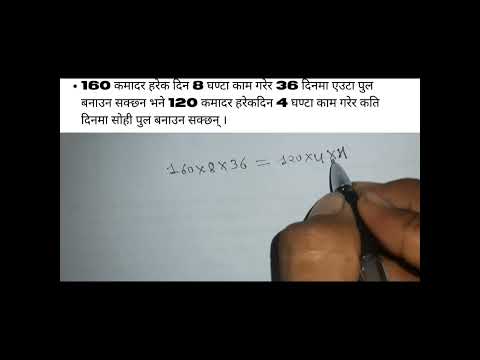 • 160 कमादर हरेक दिन 8 घण्टा काम गरेर 36 दिनमा एउटा पुल
बनाउन सक्छन भने 120 कमादर हरेकदिन 4 घण्टा काम गरेर कति
दिनमा सोही पुल बनाउन सक्छन् ।
160×8×36 = 120×4×H